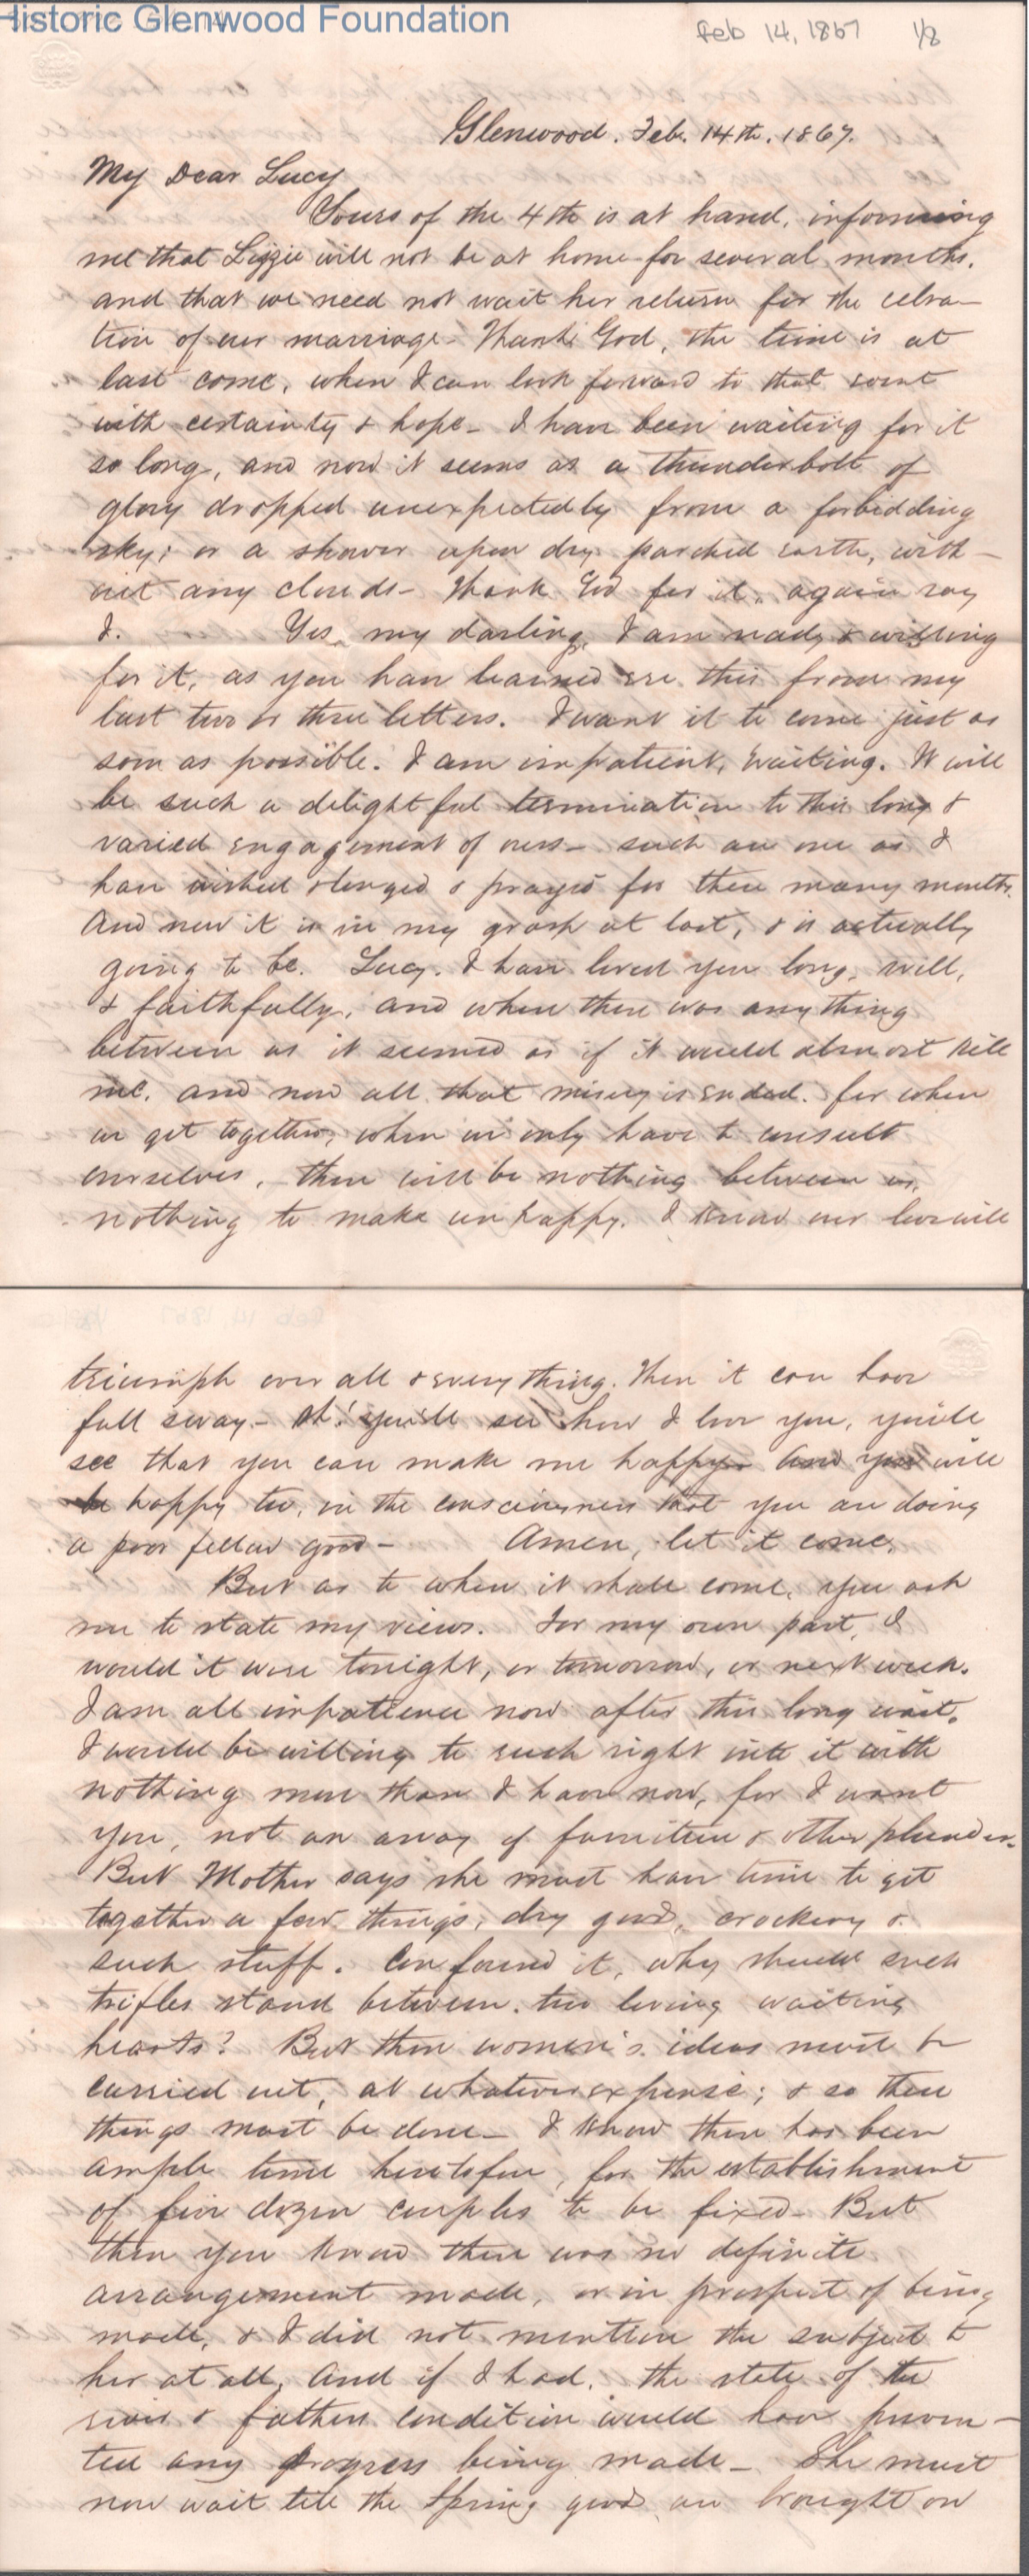 Historic Glenwood Foundation
Feb 14, 1867 1/8
Glenwood. Feb. 14th. 1867.
My Dear Lucy
Yours of the 4th is at hand, informing
me that Lizzie will not be at home for several months,
and that we need not wait her return for the celra-
tion of our marriage- Thank God, the time is at
last come, when I can look forward to that event
with certainty & hope- I have been waiting for it
so long, and now it seems as a thunderbolt of
glory dropped unexpectedly from a forbidding
sky; or a shower upon dry parched earth, with-
out any clouds- Thank God for it, again say
I. Yes, my darling, I am ready & willing
for it, as you have learned ere this from my
last two or three letters. I want it to come just as
soon as possible. I am impatient, waiting. It will
be such a delightful termination to this long &
varied engagement of ours- such an one as I
have wished & longed & prayed for these many months.
And now it is in my grasp at last, & is actually
going to be. Lucy. I have loved you long, well,
& faithfully, and when there was anything
between us it seemed as if it would almost kill
me. and now all that misery is ended. for when
we get together, when we only have to consult
ourselves, there will be nothing between us,
nothing to make unhappy. I know our love will
triumph over all & everything. Then it can have
full sway- Oh! you'll see how I love you, you'll
see that you can make me happy- And you will
be happy too, in the consciousness that you are doing
a poor fellow good- Amen, let it come.
But as to when it shall come, you ask
me to state my views. For my own part, I
would it were tonight, or tomorrow, or next week.
I am all impatience now after this long wait.
I would be willing to rush right into it with
nothing more than I have now, for I want
you, not an array of furniture & other plunder.
But Mother says she must have time to get
together a few things, dry goods, crockery &
such stuff. Confound it, why should such
trifles stand between two loving waiting
hearts? But these women's ideas must be
carried out, at whatever expense; & so these
things must be done- I know there has been
ample time heretofore, for the establishment
of five dozen couples to be fixed- But
then you know there was no definite
arrangement made, or in prospect of being
made, & I did not mention the subject to
her at all, And if I had, the state of the
river & fathers condition would have preven-
ted any progress being made- She must
now wait till the Spring goods are brought on